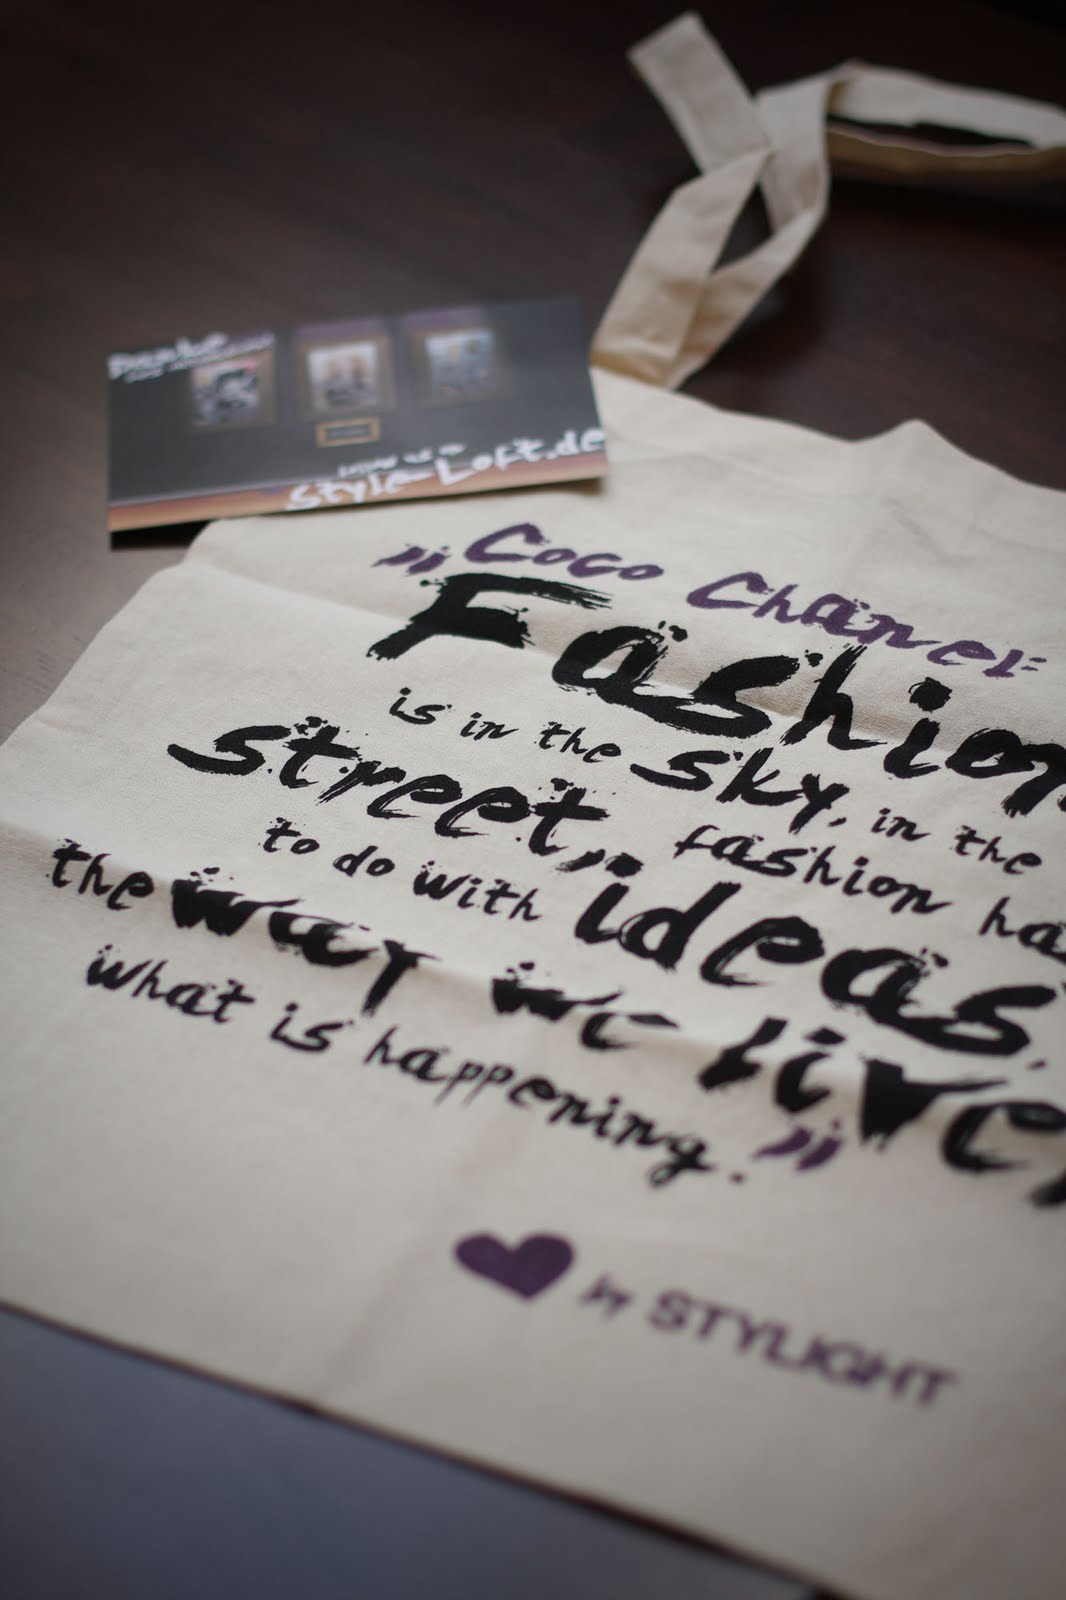 Style-Loft.de
„Coco Chanel:
Fashion
is in the sky, in the
street, fashion ha
to do with ideas,
the way we live,
what is happening."
♥ by STYLIGHT